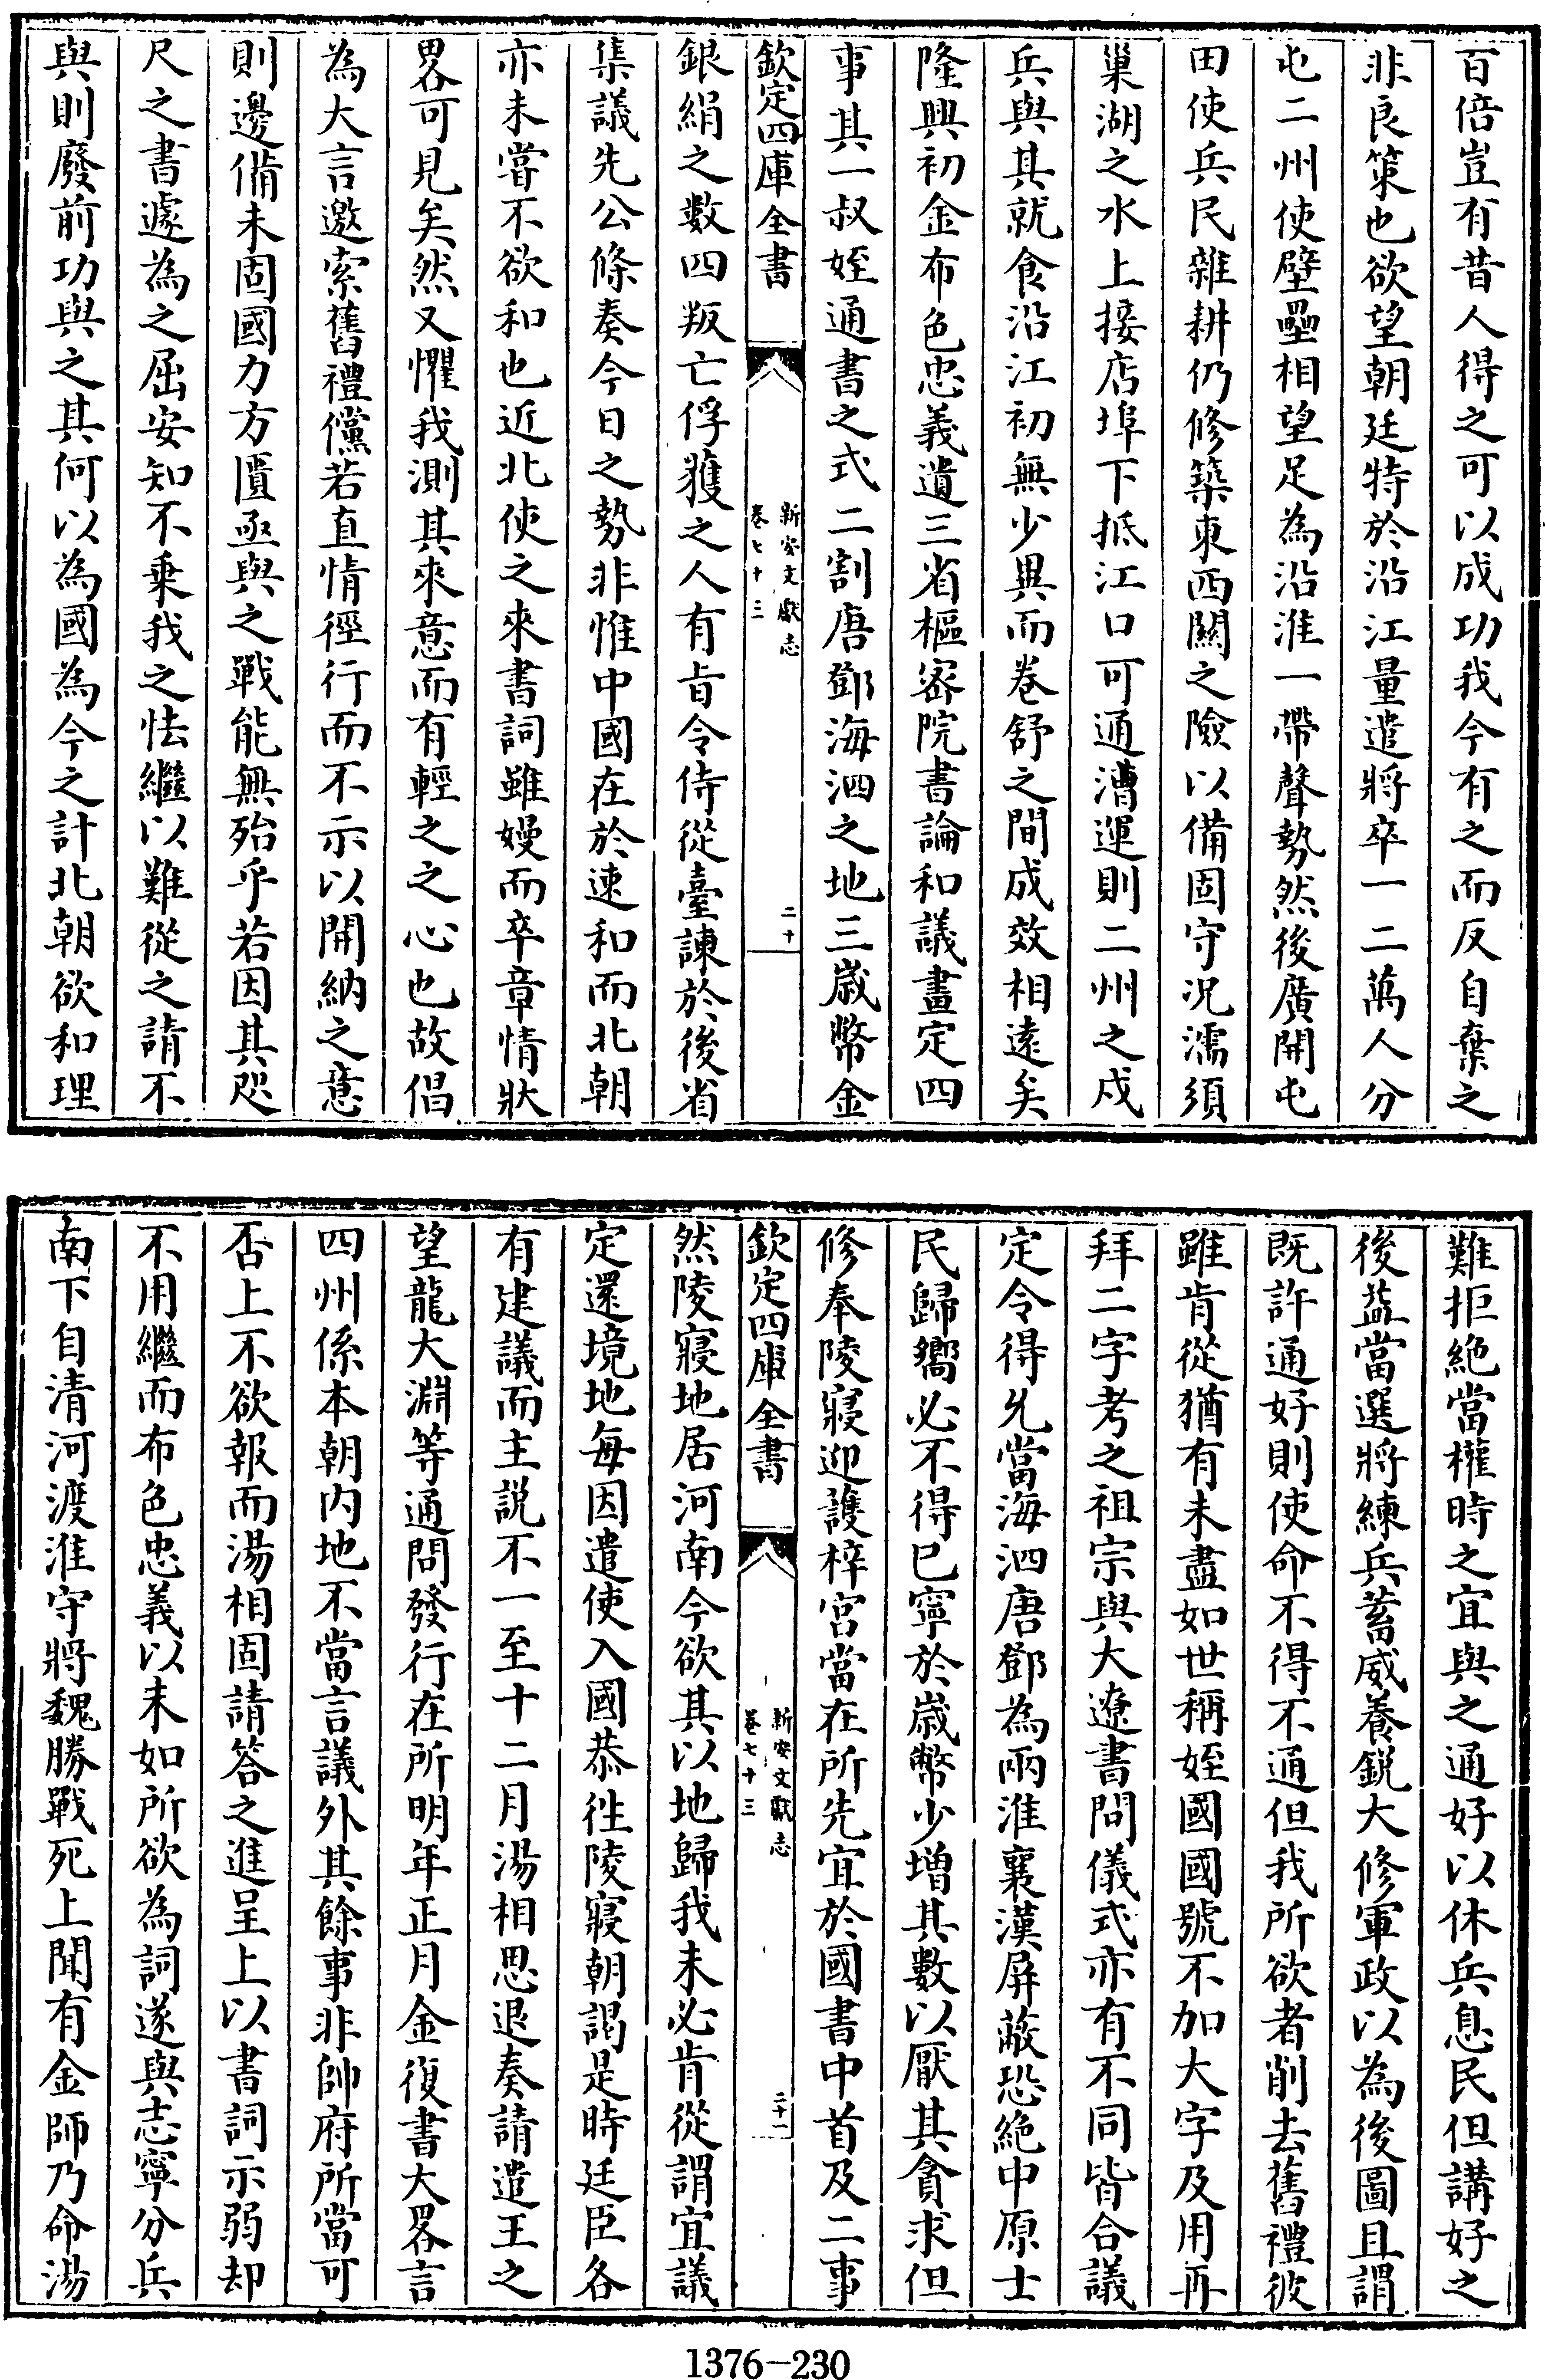 百倍豈有昔人得之可以成功我今有之而反自棄之
非良策也欲望朝廷特於沿江量遣將卒一二萬人分
屯二州使壁壘相望足為沿淮一帶聲勢然後廣開屯
田使兵民雜耕仍修築東西關之險以備固守况濡須
巢湖之水上接店埠下抵江口可通漕運則二州之戍
兵與其就食沿江初無少異而卷舒之間成效相遠矣
隆興初金布色忠義遺三省樞密院書論和議畫定四
事其一叔姪通書之式二割唐鄧海泗之地三歲幣金
欽定四庫全書
新安文獻志
卷七十三
二十
銀絹之數四叛亡俘獲之人有旨令侍從臺諫於後省
集議先公條奏今日之勢非惟中國在於速和而北朝
亦未嘗不欲和也近北使之來書詞雖嫚而卒章情狀
畧可見矣然又懼我測其來意而有輕之之心也故倡
為大言邀索舊禮儻若直情徑行而不示以開納之意
則邊備未固國力方匱亟與之戰能無殆乎若因其咫
尺之書遽為之屈安知不乗我之怯繼以難從之請不
與則廢前功與之其何以為國為今之計北朝欲和理
難拒絶當權時之宜與之通好以休兵息民但講好之
後葢當選將練兵蓄威養鋭大修軍政以為後圖且謂
既許通好則使命不得不通但我所欲者削去舊禮彼
雖肯從猶有未盡如世稱姪國國號不加大字及用再
拜二字考之祖宗與大遼書問儀式亦有不同皆合議
定令得允當海泗唐鄧為兩淮襄漢屏蔽恐絶中原士
民歸嚮必不得已寧於歲幣少増其數以厭其貪求但
修奉陵寢迎護梓宫當在所先宜於國書中首及二事
欽定四庫全書
新安文獻志
卷七十三
二十一
然陵寢地居河南今欲其以地歸我未必肯從謂宜議
定還境地每因遣使入國恭徃陵寢朝謁是時廷臣各
有建議而主説不一至十二月湯相思退奏請遣王之
望龍大淵等通問發行在所明年正月金復書大畧言
四州係本朝内地不當言議外其餘事非帥府所當可
否上不欲報而湯相固請答之進呈上以書詞示弱却
不用繼而布色忠義以未如所欲為詞遂與志寧分兵
南下自清河渡淮守將魏勝戰死上聞有金師乃命湯
1376-230